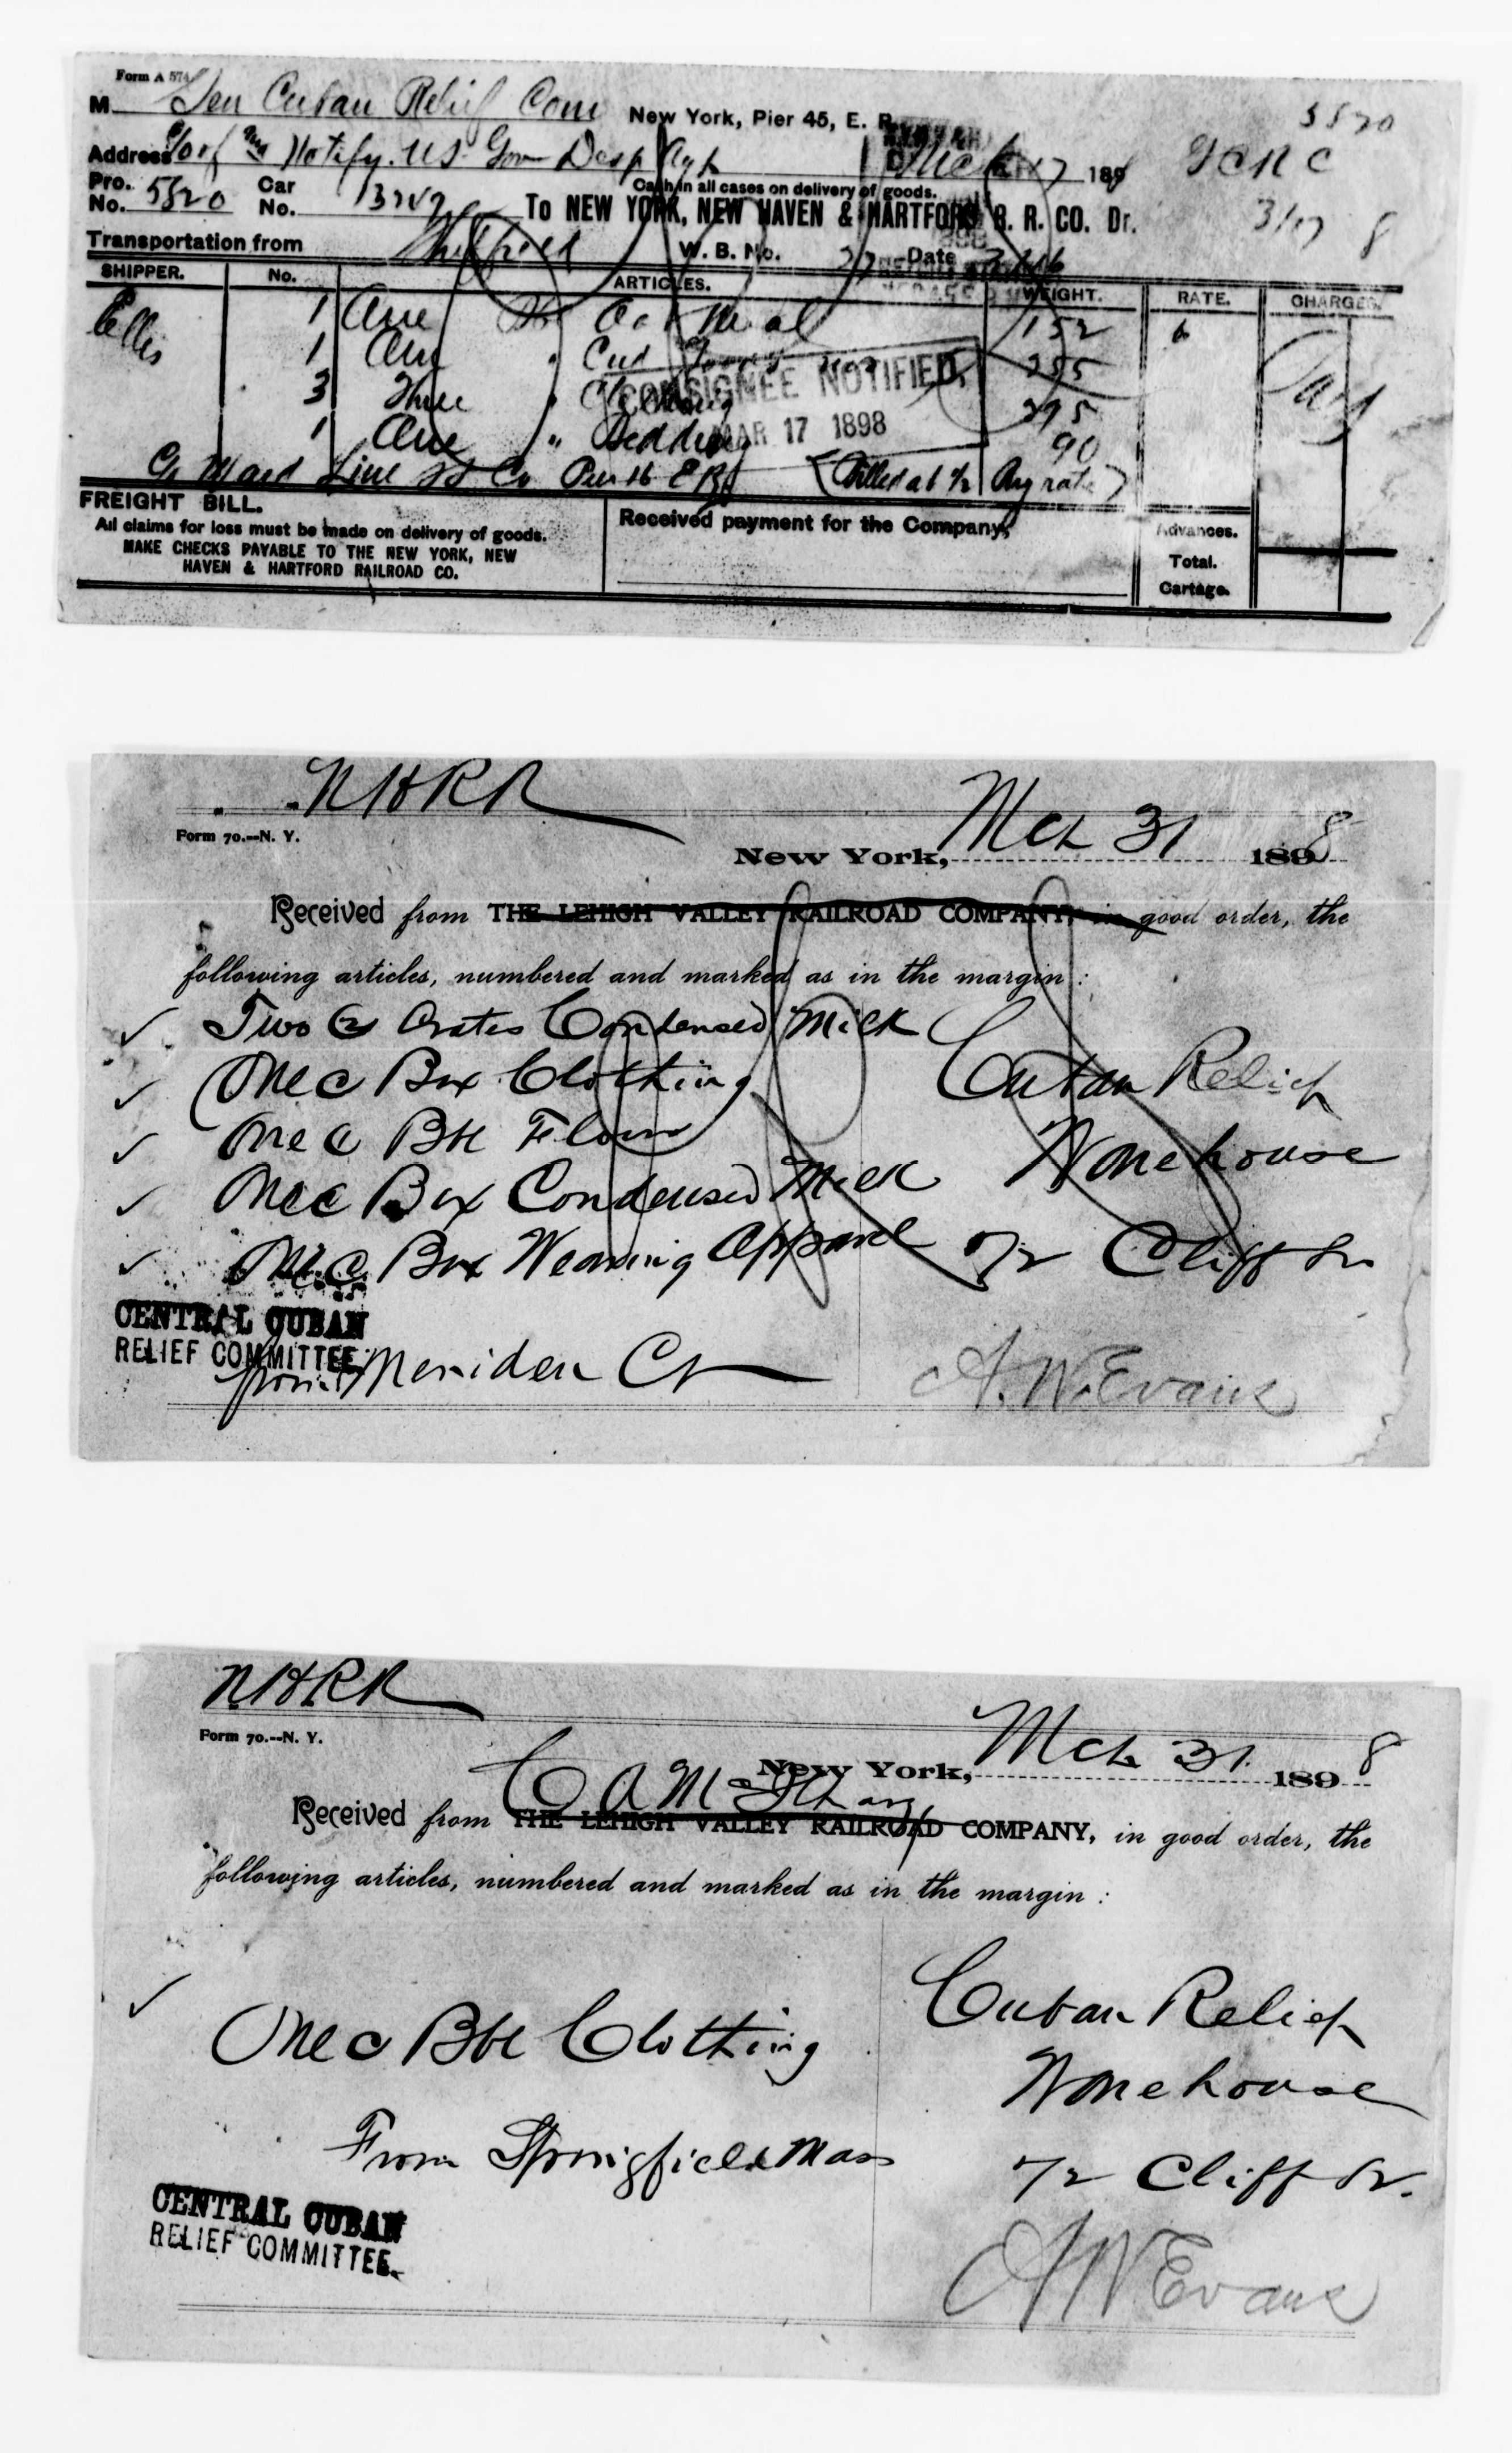 Form A 574
M Gen Cuban Relief Com New York, Pier 45, E. R. Mch 17 1898 5820
Address c/o of Notify. US Gov Desp Agt
Pro. No. 5820 Car No. Cash in all cases on delivery of goods.
To NEW YORK, NEW HAVEN & HARTFORD R. R. CO. Dr. 3/17 8
Transportation from W. B. No. 27 Date 3/16
SHIPPER. No. ARTICLES. WEIGHT. RATE. CHARGES.
Ellis 1 One Oat Meal 152 6
1 One " 255
3 Three " Clothing 295
1 One " Bedding 90
CONSIGNEE NOTIFIED.
MAR 17 1898
C/o Ward Line SS Co Pier 16 E R (Billed at 1/2 Reg rate)
FREIGHT BILL.
All claims for loss must be made on delivery of goods.
MAKE CHECKS PAYABLE TO THE NEW YORK, NEW
HAVEN & HARTFORD RAILROAD CO.
Received payment for the Company,
Advances.
Total.
Cartage.
NHRR
Form 70.--N. Y.
New York, Mch 31 1898
Received from THE LEHIGH VALLEY RAILROAD COMPANY, in good order, the
following articles, numbered and marked as in the margin:
✓ Two (2) Crates Condensed Milk
✓ One c Box Clothing Cuban Relief
✓ One c Bbl Flour Warehouse
✓ One c Box Condensed Milk
✓ One c Box Wearing Apparel 72 Cliff St
CENTRAL CUBAN
RELIEF COMMITTEE
from Meriden Ct A. W. Evans
NHRR
Form 70.--N. Y.
New York, Mch 31. 1898
Received from THE LEHIGH VALLEY RAILROAD COMPANY, in good order, the
following articles, numbered and marked as in the margin:
✓ One c Bbl Clothing Cuban Relief
Warehouse
From Springfield Mass 72 Cliff St.
CENTRAL CUBAN
RELIEF COMMITTEE.
A W Evans